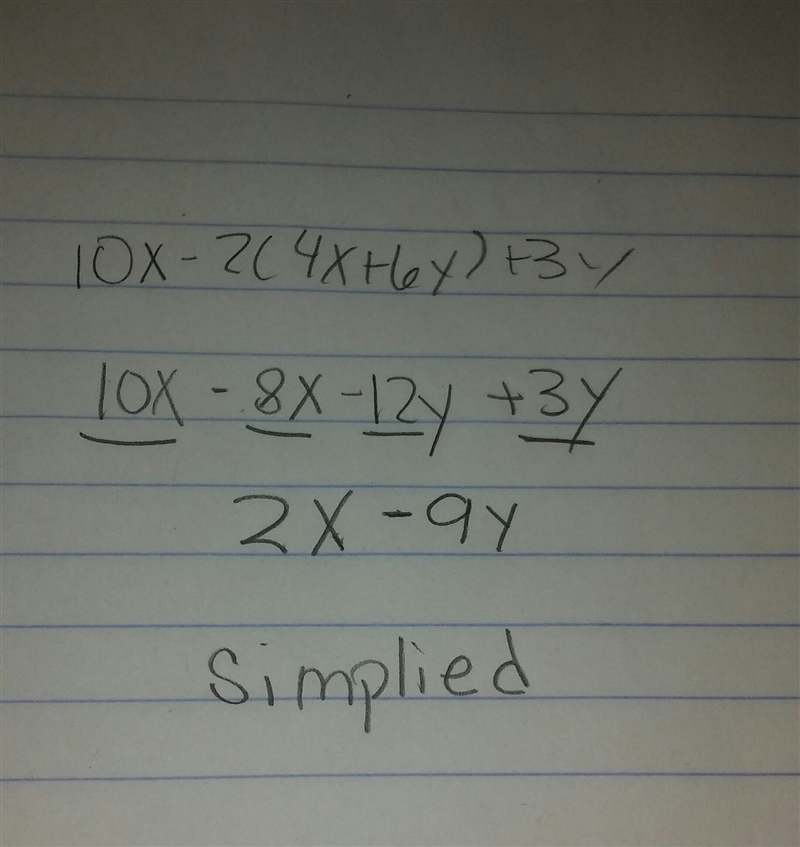 10x - 2(4x+6y) +3y
10x - 8x -12y +3y
2x -9y
Simplied